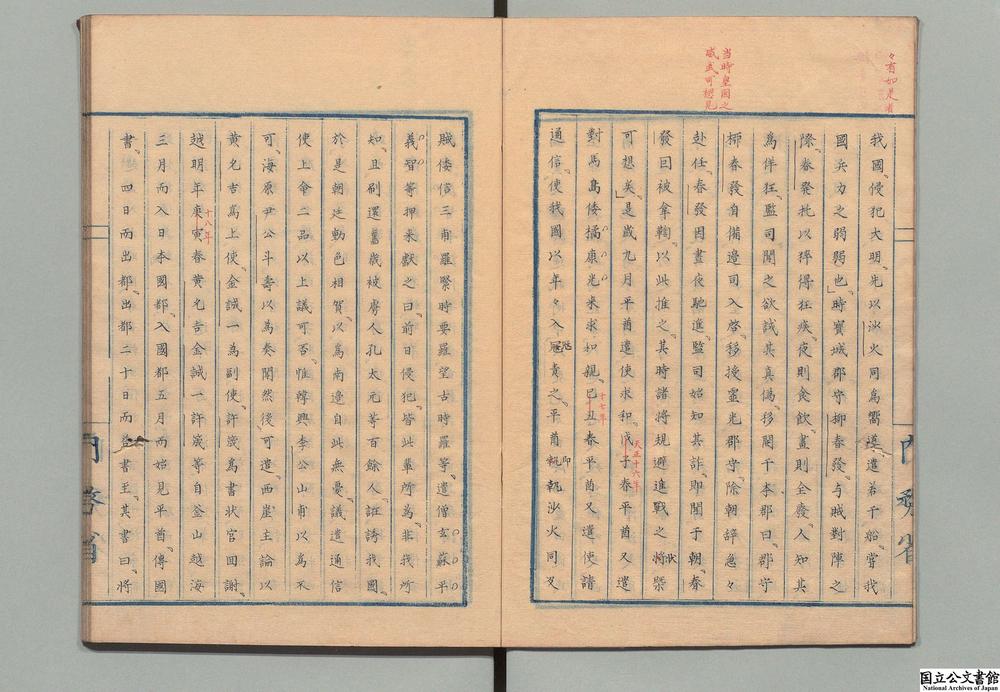 々有如是者
当時皇国之
威武可想見
我國侵犯大明先以沙火同爲嚮導遣若干船嘗我
國兵力之弱弱也時寶城郡守柳春發与賊對陣之
際春發批以猝得狂疾夜則食飲晝則全廢人知其
爲佯狂監司聞之欲試其真僞移関于本郡曰郡守
柳春發自備邊司入啓移授靈光郡守除朝辞急々
赴任春發因晝夜馳進監司始知其詐即聞于朝春
發囙被拿鞫以此推之其時諸將規避進戰之狀槩
可想矣是歳九月平酋遣使求和戊子春平酋又遣
天正十六年
對馬島倭橘康光来求和親己丑春平酋又遣使請
十七年
通信使我國以年々入冦責之平酋執沙火同及
即
賊倭信三甫羅緊時要羅望古時羅等遣僧玄蘇平
義智等押来獻之曰前日侵犯皆此輩所爲非我所
知且刷還舊歳被虜人孔太元等百餘人誑誘我國
於是朝廷動色相賀以爲南邊自此無憂議遣通信
使上命二品以上議可否惟樽興李公山甫以爲不
可海原尹公斗壽以為奏聞然後可遣西崖主論以
黄允吉爲上使金誠一為副使許筬爲書状官囬謝
越明年庚寅春黄允吉金誠一許筬等自釜山越海
十八年
三月而入日本國都入國都五月而始見平酋傳國
書四日而出都出都二十日而答書至其書曰將
国立公文書館
National Archives of Japan